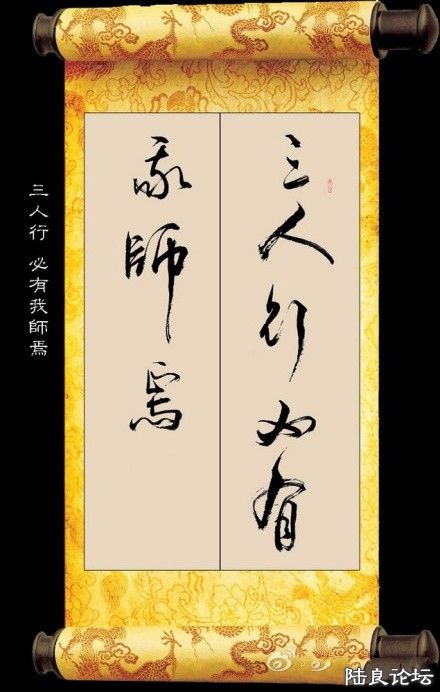 三人行必有
我師焉
三人行 必有我師焉
陆良论坛